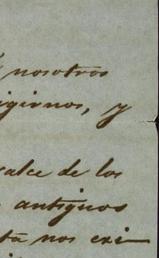 nosotros
igirnos, y
calce de los
antiguos
ta nos exi-